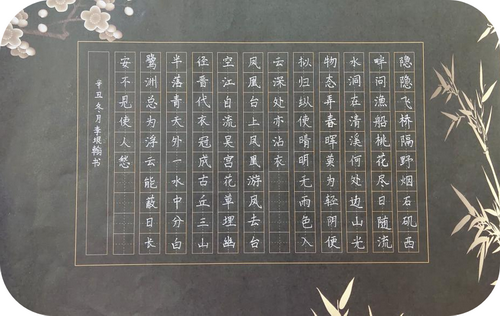 隐隐飞桥隔野烟石矶西
畔问渔船桃花尽日随流
水洞在清溪何处边山光
物态弄春晖莫为轻阴便
拟归纵使晴明无雨色入
云深处亦沾衣
凤凰台上凤凰游凤去台
空江自流吴宫花草埋幽
径晋代衣冠成古丘三山
半落青天外一水中分白
鹭洲总为浮云能蔽日长
安不见使人愁
辛丑冬月李书